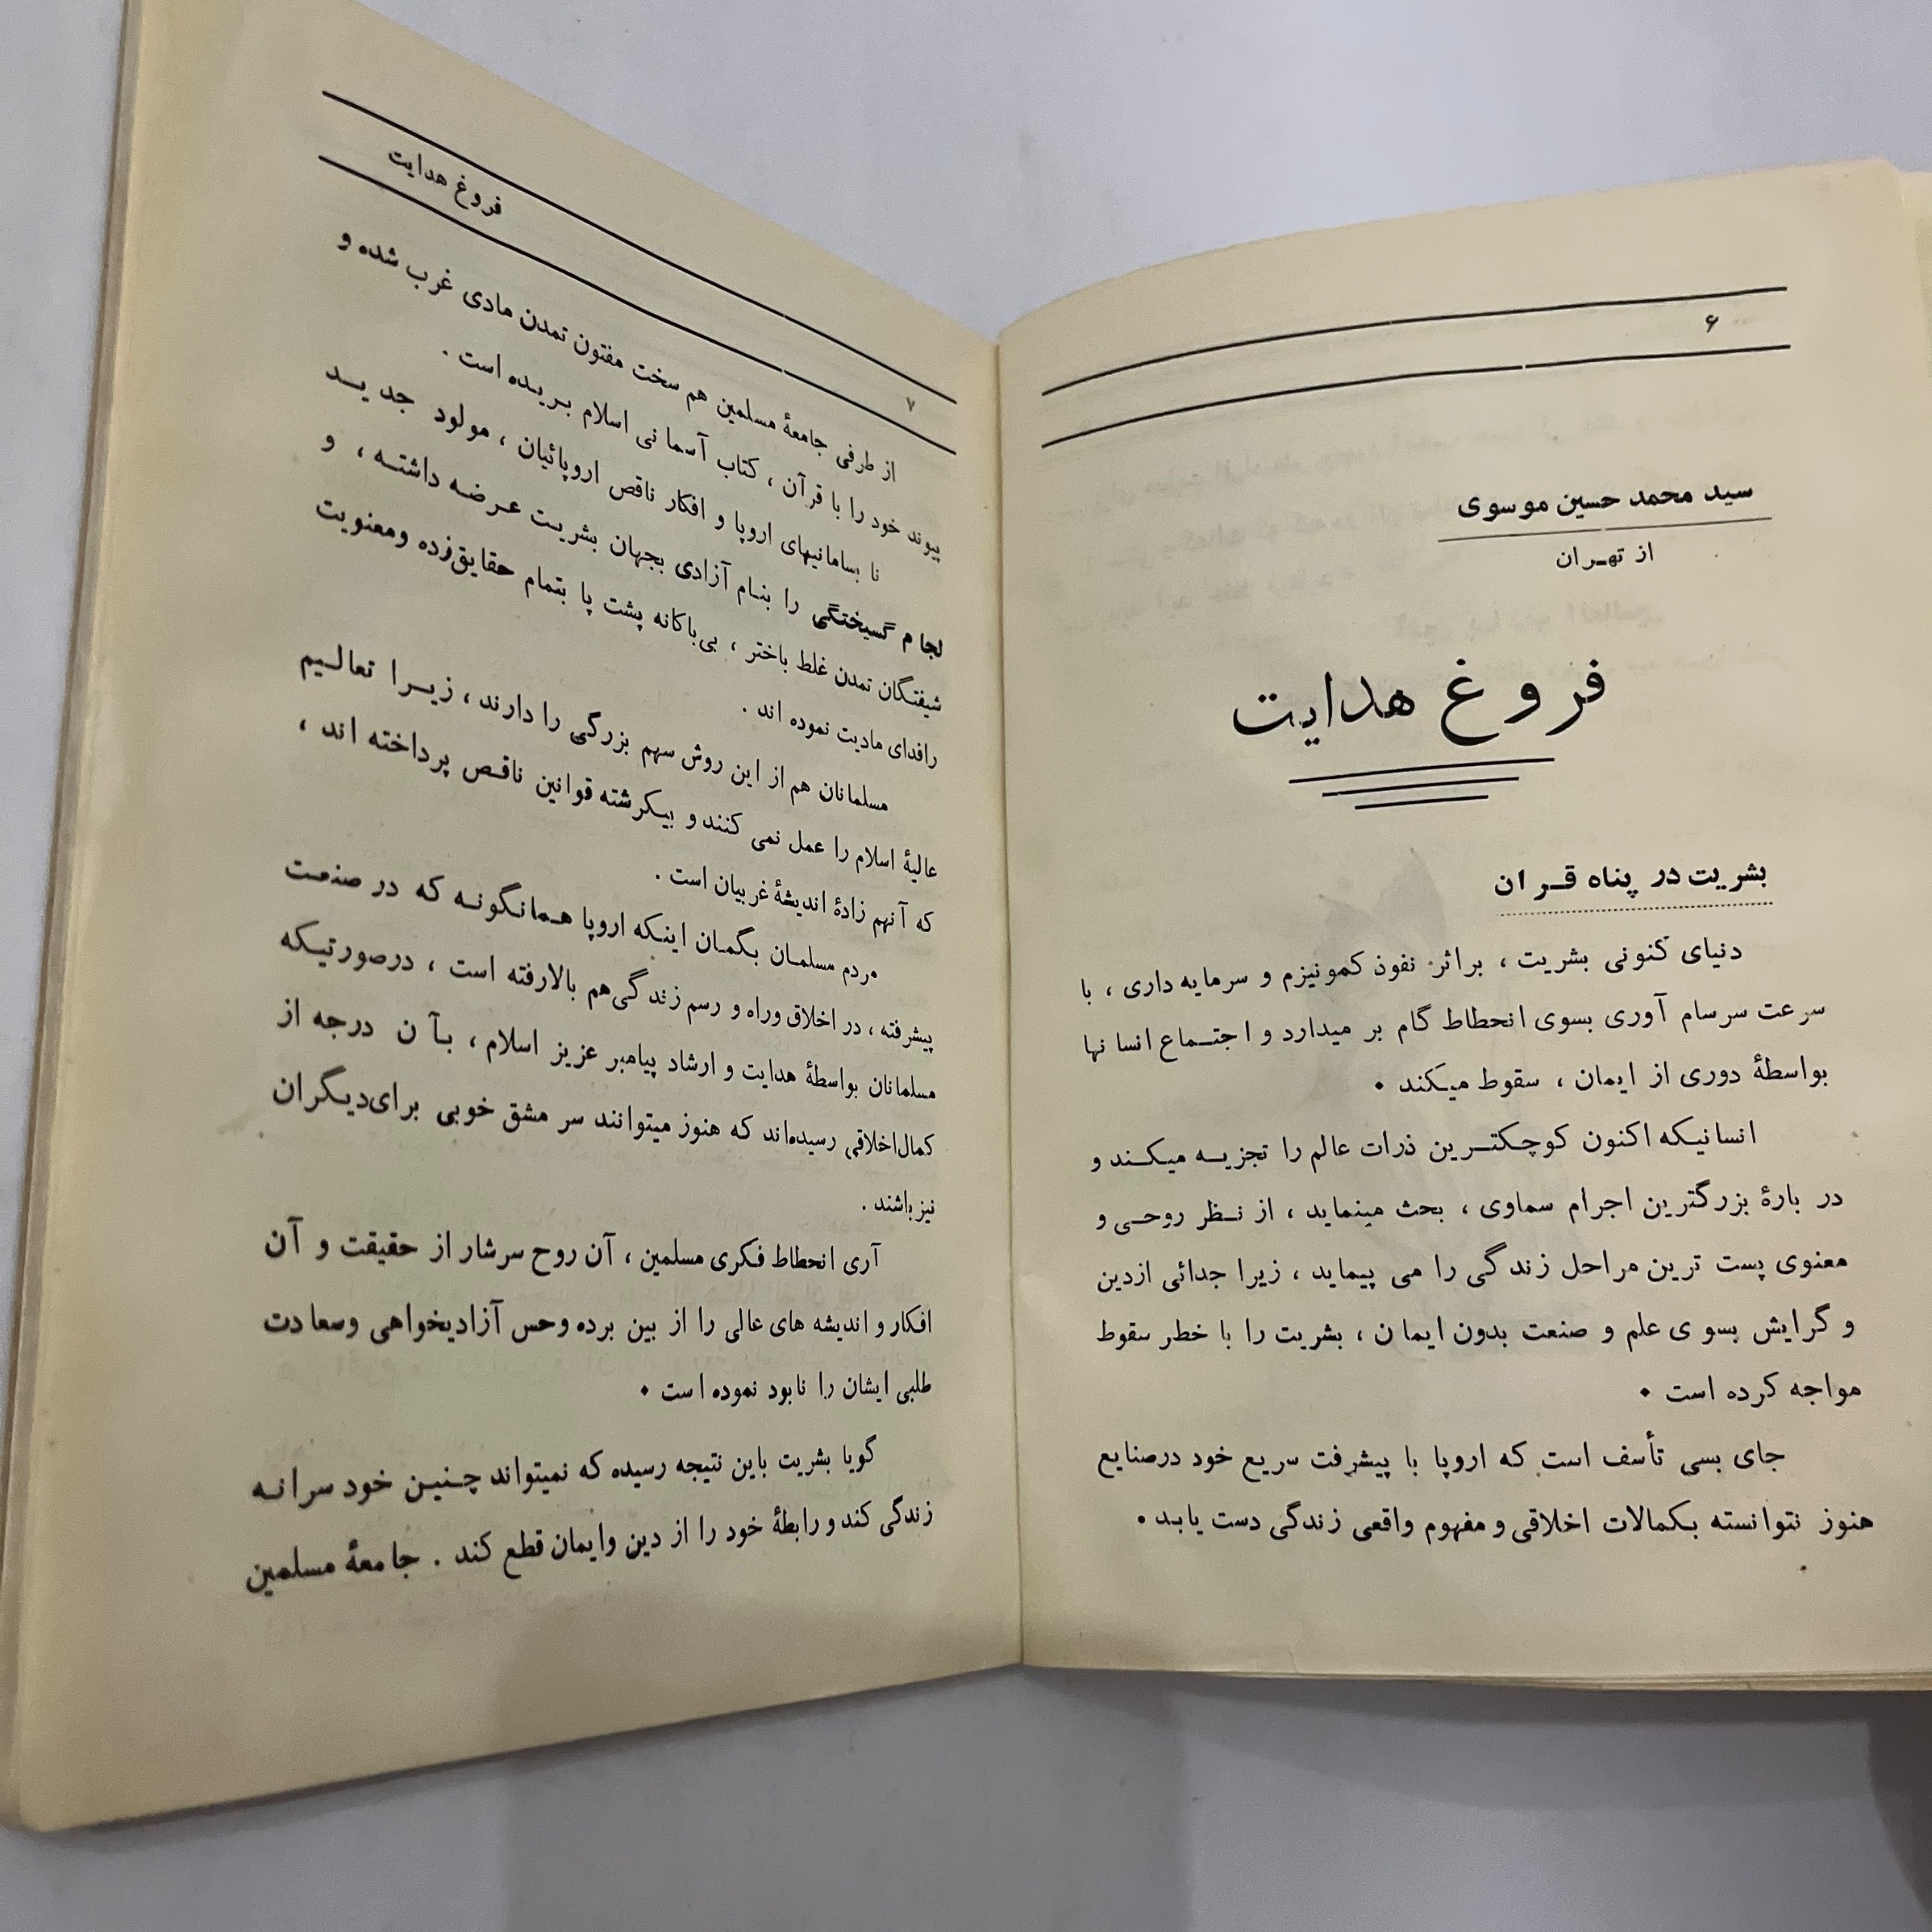 ۶
سید محمد حسین موسوی
از تهران
فروغ هدایت
بشریت در پناه قران
دنیای کنونی بشریت ، براثر نفوذ کمونیزم و سرمایه داری ، با
سرعت سرسام آوری بسوی انحطاط گام بر میدارد و اجتماع انسانها
بواسطهٔ دوری از ایمان ، سقوط میکند .
انسانیکه اکنون کوچکترین ذرات عالم را تجزیه میکند و
در بارهٔ بزرگترین اجرام سماوی ، بحث مینماید ، از نظر روحی و
معنوی پست ترین مراحل زندگی را می پیماید ، زیرا جدائی ازدین
و گرایش بسوی علم و صنعت بدون ایمان ، بشریت را با خطر سقوط
مواجه کرده است .
جای بسی تأسف است که اروپا با پیشرفت سریع خود درصنایع
هنوز نتوانسته بکمالات اخلاقی و مفهوم واقعی زندگی دست یابد .
فروغ هدایت
۷
از طرفی جامعهٔ مسلمین هم سخت مفتون تمدن مادی غرب شده و
پیوند خود را با قرآن ، کتاب آسمانی اسلام بریده است .
نا بسامانیهای اروپا و افکار ناقص اروپائیان ، مولود جدید
لجام گسیختگی را بنام آزادی بجهان بشریت عرضه داشته ، و
شیفتگان تمدن غلط باختر ، بی‌باکانه پشت پا بتمام حقایق‌زده ومعنویت
رافدای مادیت نموده اند .
مسلمانان هم از این روش سهم بزرگی را دارند ، زیرا تعالیم
عالیهٔ اسلام را عمل نمی کنند و بیکرشته قوانین ناقص پرداخته اند ،
که آنهم زادهٔ اندیشهٔ غربیان است .
مردم مسلمان بگمان اینکه اروپا همانگونه که در صنعت
پیشرفته ، در اخلاق وراه و رسم زندگی‌هم بالارفته است ، درصورتیکه
مسلمانان بواسطهٔ هدایت و ارشاد پیامبر عزیز اسلام ، بآن درجه از
کمال‌اخلاقی رسیده‌اند که هنوز میتوانند سر مشق خوبی برای‌دیگران
نیز باشند .
آری انحطاط فکری مسلمین ، آن روح سرشار از حقیقت و آن
افکار و اندیشه های عالی را از بین برده وحس آزادیخواهی وسعادت
طلبی ایشان را نابود نموده است .
گویا بشریت باین نتیجه رسیده که نمیتواند چنین خود سرانه
زندگی کند و رابطهٔ خود را از دین وایمان قطع کند . جامعهٔ مسلمین